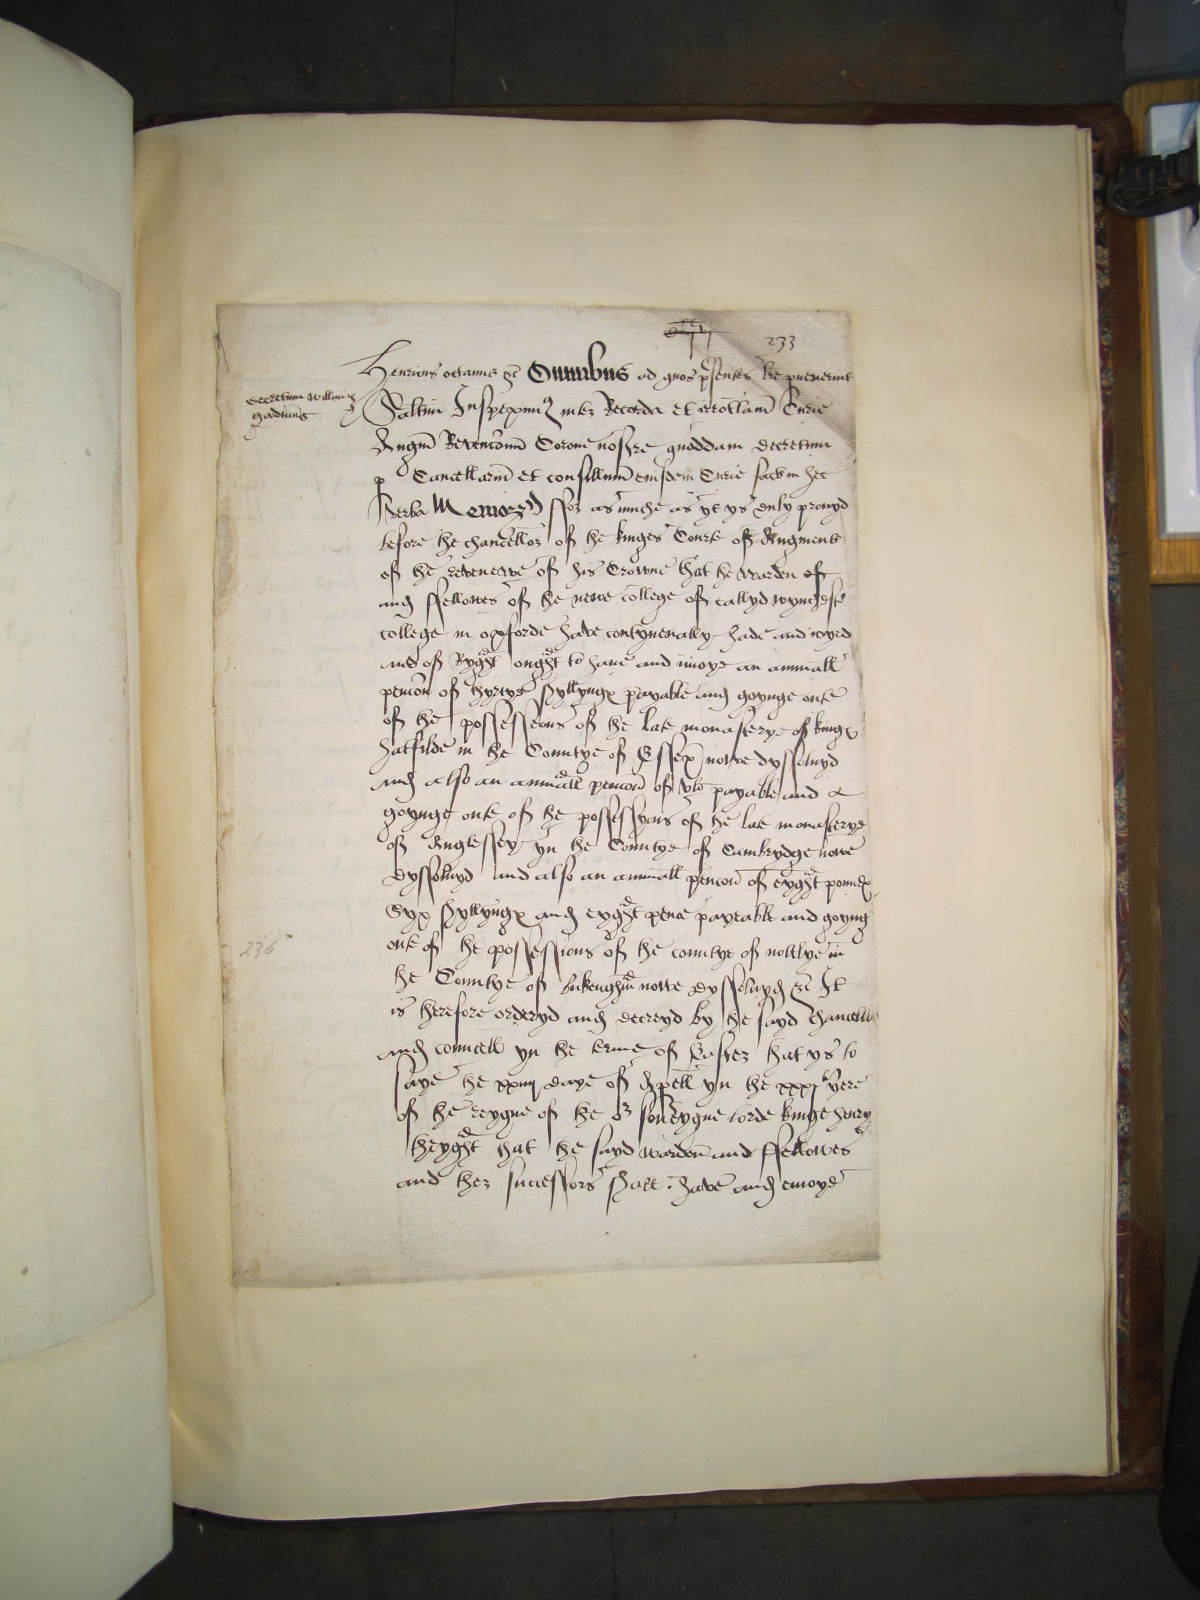 233
Henricus octavus &c Omnibus ad quos p'sentes l're pervenerint
decretum Willm
Saltm Inspeximus int' Recorda et irrotlam Curie
Augm Revencionu Corone nostre quoddam decretum
p Cancellariu et consilium eiusdem Curie fact in hec
verba Memorand ffor as muche as yt ys duly provyd
before the chancellor of the kinges Courte of Augment
of the revenewe of his Crowne that the Warden of
and ffellowes of the newe college of callyd wynchest'
college in oxforde have contynenally hade and inoyed
and of Ryght ought to have and inioye an annuall
pencon of thyrtye shyllyng payable and goynge oute
of the possessions of the late monasterye of kings
hatfilde in the Countye of Essex nowe dyssolvyd
and also an annuall pencon of payable and
goynge oute of the possessyons of the late monasterye
of Anglessey yn the Countye of Cambrydge nowe
dyssolvyd and also an annuall pencon of eyght pound
Syx shyllyng and eyght pence payeable and goyng
oute of the possessions of the countye of nottlye in
236
the Countye of bukengham nowe dyssolvyd &c It
is therefore orderyd and decreyd by the sayd chancello
and councell yn the terme of Easter that ys to
saye the xxiiij daye of Apell yn the xxxj yere
of the reygne of the or sov'eygne lorde kinge henry
theyght that the sayd warden and ffellowes
and ther successors shall have and enioye